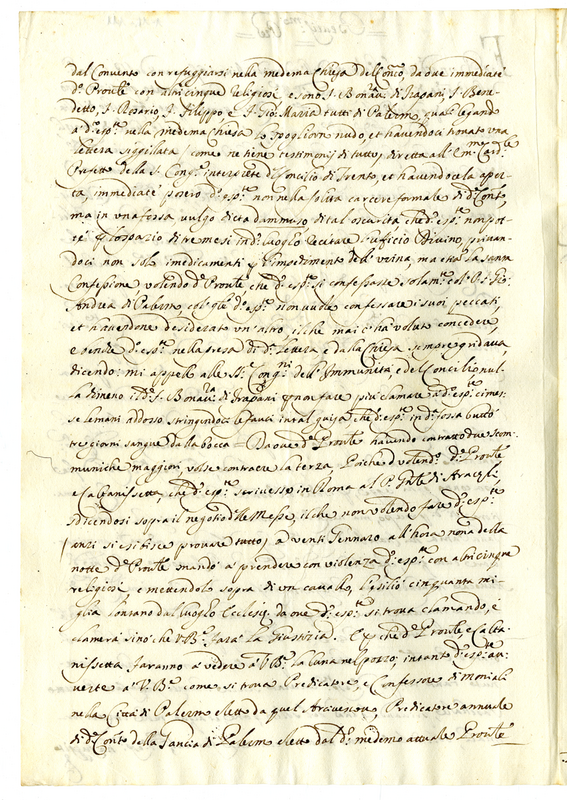 dal Convento con refuggiarsi nella medema Chiesa del Con.to, da dove immediate
d.o Prov.le con altri cinque religiosi e sono f. Bonav.a di Trapani, f. Bene-
detto, f. Rosario, f. Filippo e f. Gio: Maria tutti di Palermo, quali legando
a d.o esp.te nella medema chiesa lo spogliorn nudo, et havendoci trovato una
lettera siggillata (come ne tiene testimonij di tutto) diretta all'Em.mo Card.le
Prefetto della S. Cong.ne interprete di Concilio di Trento, et havendocela aper-
ta, immediate posero d.o esp.te non nella solita carcere formale di d.o Con.to,
ma in una fossa vulgo dicta dammuso di tal oscurità che d.o esp.te non pot-
té p lo spazio di tre mesi in d.o luogo recitare l'ufficio Divino, privan-
doci non solo i medicamenti p l'impedimento dell'urina, ma etiā la santa
Confessione volendo d.o Prov.le che d.o esp.te si confessasse solam.te col P. f. Gio:
Andrea di Palermo, col q.le d.o esp.te non vuole confessare i suoi peccati,
et havendone desiderato un'altro, il che mai c'hà voluto concedere,
e perche d.o esp.te nella presa di d.a lettera e dalla Chiesa sempre gridava,
dicendo: mi appello alle SS. Cong.ni dell'Immunità e del Concilio nul-
la dimeno il d.o f. Bonav.ra di Trapani p non fare più clamare a d.o esp.te ci mes-
se le mani adosso stringendoci le fauci in tal guisa che d.o esp.te in d.a fossa buttò
tre giorni sangue dalla bocca = Da ove d.o Prov.le havendo contratto due scom-
muniche maggiori volse contraere la terza, Poiche volend.o d.o Prov.le
e Caltanissetta, che d.o esp.te scrivesse in Roma al P. G.nle di Aracæli,
disdicendosi sopra il negotio d.lle Messe, il che non volendo fare d.o esp.te
anzi si esibisce provare tutto, a venti Gennaro all'hora nona della
notte d.o Prov.le mandò a prendere con violenza d.o esp.te con altri cinque
religiosi e mettendolo sopra di un cavallo, l'esiliò cinquanta mi-
glia lontano dal luogo da ove d.o esp.te si trova clamando, e
clamerà sino che V. B.ne farà la Giustizia. E p che d.o Prov.le e Calta-
nissetta faranno a vedere a V. B.ne la luna nel pozzo, intanto d.o esp.te av-
verte a V. B.ne come si trova Predicatore, e Confessore di moniali
nella Città di Palermo eletto da quel Arcivescovo, Predicatore annuale
di d.o Con.to della Gancia di Palermo eletto dal d.o medemo attuale Prov.le